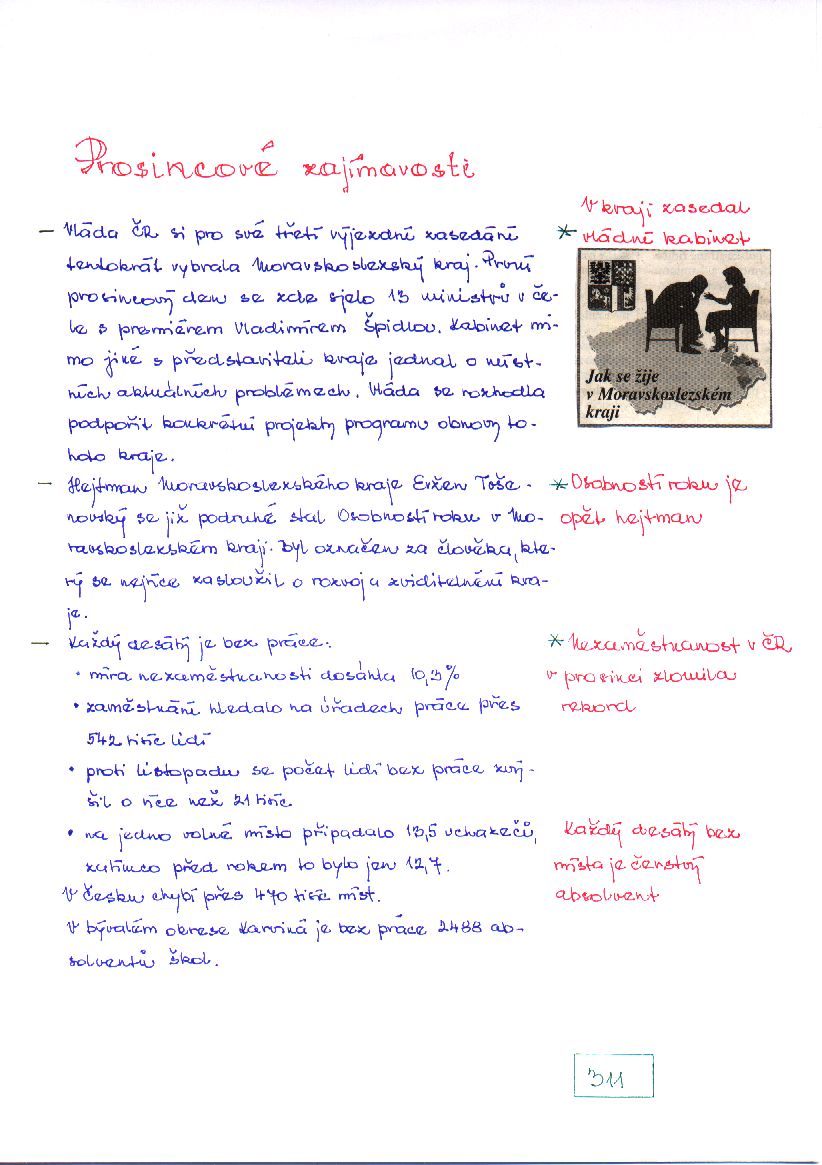 Prosincové zajímavosti
V kraji zasedal
* vládní kabinet
Jak se žije
v Moravskoslezském
kraji
– Vláda ČR si pro své třetí výjezdní zasedání
tentokrát vybrala Moravskoslezský kraj. První
prosincový den se zde sjelo 13 ministrů v če-
le s premiérem Vladimírem Špidlou. Kabinet mi-
mo jiné s představiteli kraje jednal o míst-
ních aktuálních problémech. Vláda se rozhodla
podpořit konkrétní projekty programu obnovy to-
hoto kraje.
– Hejtman Moravskoslezského kraje Evžen Toše-
novský se již podruhé stal Osobností roku v Mo-
ravskoslezském kraji. Byl označen za člověka, kte-
rý se nejvíce zasloužil o rozvoj a zviditelnění kra-
je.
* Osobností roku je
opět hejtman
– Každý desátý je bez práce:
• míra nezaměstnanosti dosáhla 10,3%
• zaměstnání hledalo na úřadech práce přes
542 tisíc lidí
• proti listopadu se počet lidí bez práce zvý-
šil o více než 21 tisíc
• na jedno volné místo připadalo 13,5 uchazečů,
zatímco před rokem to bylo jen 12,7.
V Česku chybí přes 470 tisíc míst.
V bývalém okrese Karviná je bez práce 2488 ab-
solventů škol.
* Nezaměstnanost v ČR
v prosinci zlomila
rekord
Každý desátý bez
místa je čerstvý
absolvent
311